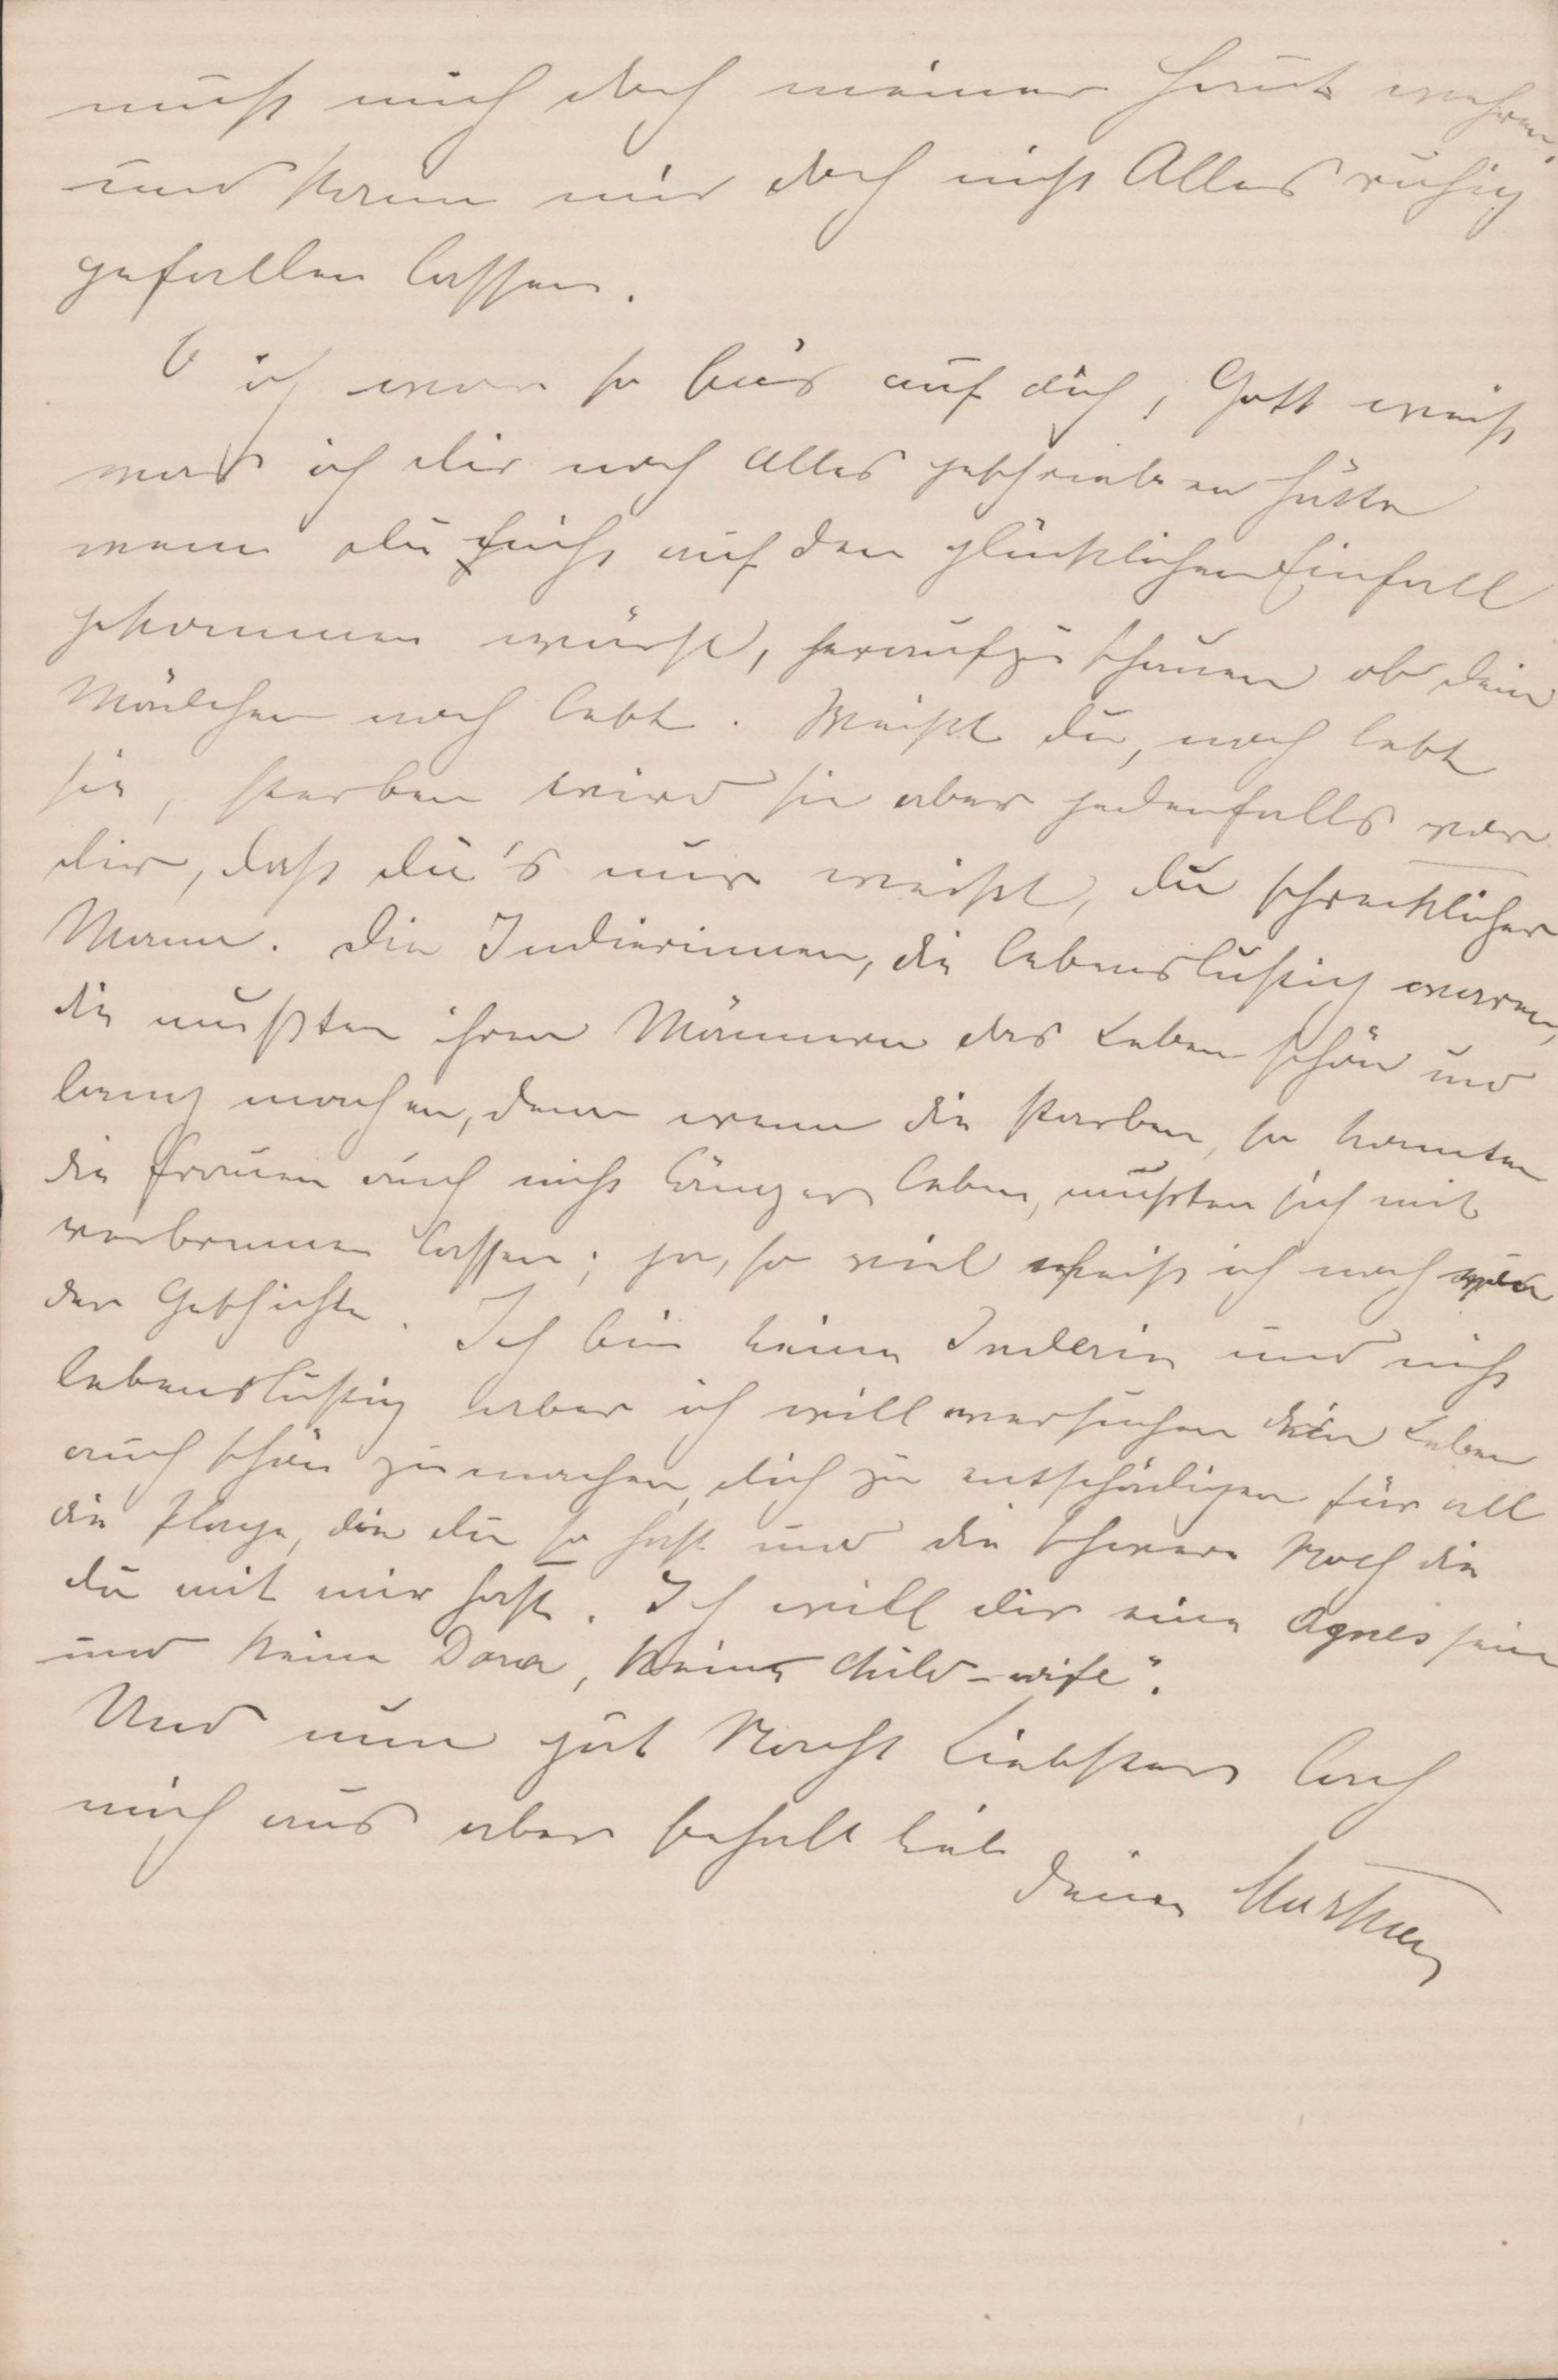 muß mich doch meiner Haut wehren,
und kann mir doch nicht Alles ruhig
gefallen lassen.
O ich war so bös auf dich, Gott weiß
was ich dir noch Alles geschrieben hätte
wenn du nicht auf den glücklichen Einfall
gekommen wärst, heraufzuschauen ob dein
Mädchen noch lebt. Weißt du, noch lebt
sie, sterben wird sie aber jedenfalls vor
dir, daß du's nur weißt, du schrecklicher
Mann. Die Indierinnen, die lebenslustig waren,
die mußten ihren Männern das Leben schön und
lang machen, denn wenn die starben, so konnten
die Frauen auch nicht länger leben, mußten sich mit
verbrennen lassen; ja, so viel weiß ich noch von
der Geschichte. Ich bin keine Inderin und nicht
lebenslustig aber ich will versuchen dein Leben
auch schön zu machen, dich zu entschädigen für all
die Plage, die du so hast und die schwere Noth die
du mit mir hast. Ich will dir eine Agnes sein
und keine Dora, keine child-wife".
Und nun gut Nacht Liebster lach
mich aus aber behalt lieb
deine Martha